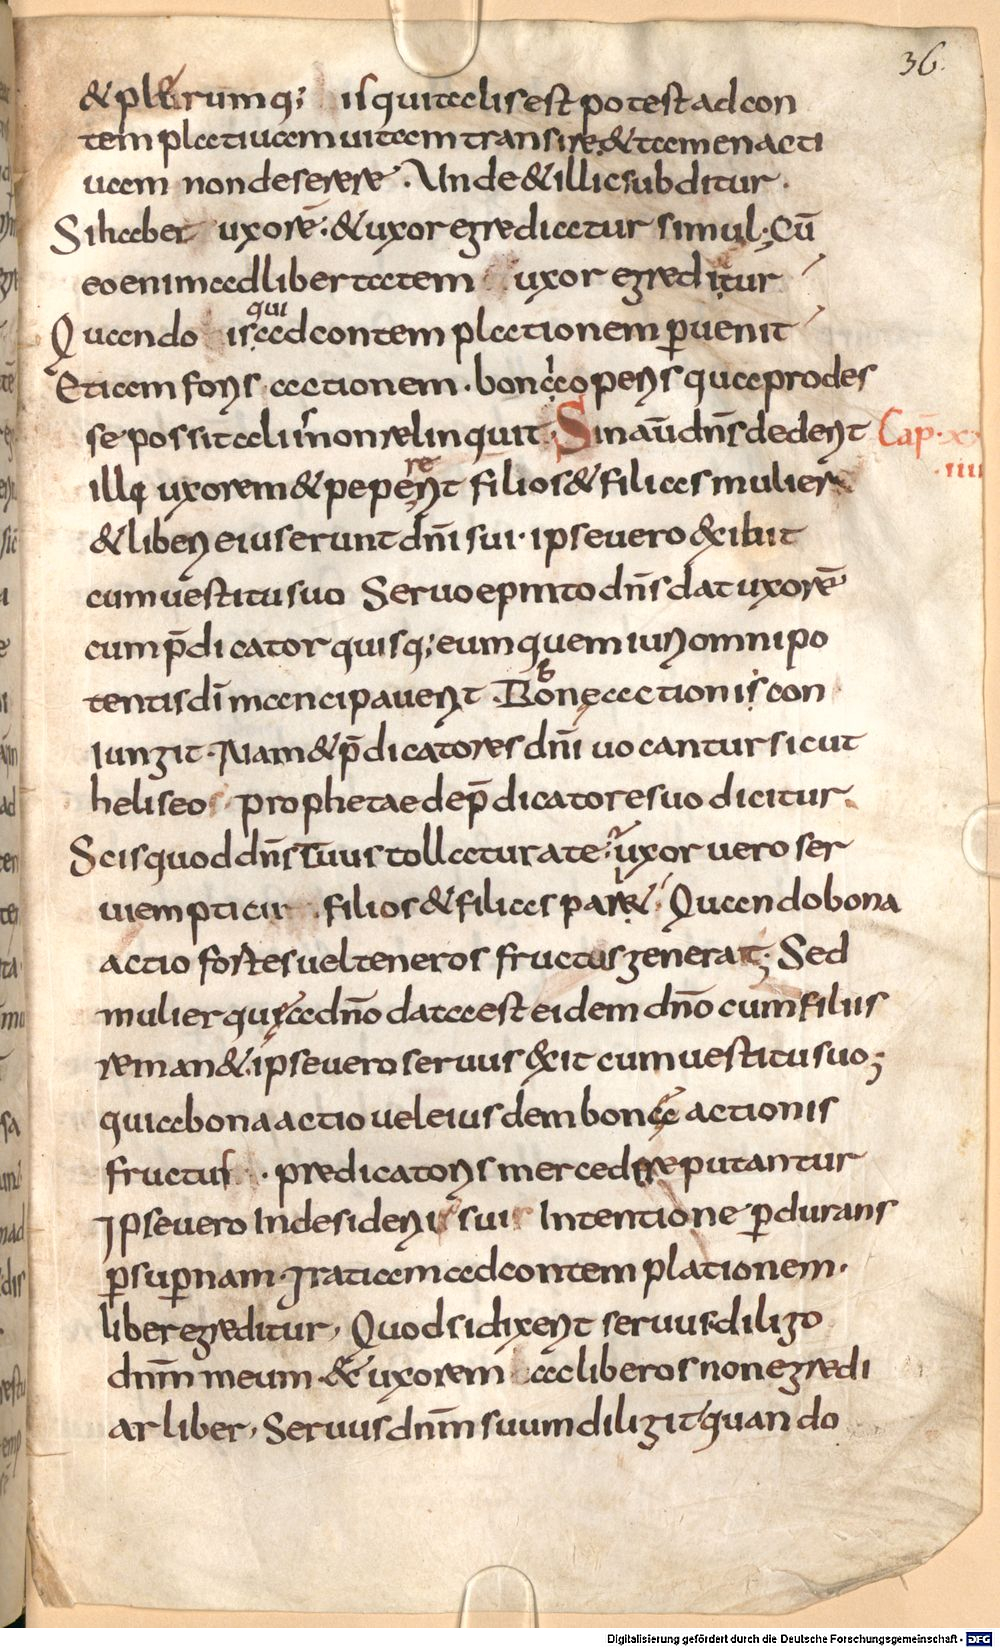 36.
& pl&rumq; is qui talis est potest ad con
templatiuam uitam transire & tamen acti
uam non deserere. Unde & illic subditur.
Si habet uxorē. & uxor egrediatur simul; Cū
eo enim ad libertatem uxor egreditur
Quando is qui ad contemplationem ꝑuenit
Etiam foris actionem. bonā operis qua prodes
se possit aliis non relinquit. Sin aū dn̄s dederit Cap̄. xx
illę uxorem & pepererit filios & filias mulier iiii
& liberi eius erunt dn̄i sui. ipse uero exibit
cum uestitu suo Seruo empto dn̄s dat uxorē
cum p̄dicator quisq; eum quem iuri omnipo
tentis dī mancipauerit. Bonę actionis con
iungit. Nam & p̄dicatores dn̄i uocantur sicut
heliseo prophetae de p̄dicatore suo dicitur.
Scis quod dn̄s tuus tollatur a te. uxor uero ser
ui empticii filios & filias par&. Quando bona
actio fortes uel teneros fructus generat; Sed
mulier quę a dn̄o data est eidem dn̄o cum filiis
reman& ipse uero seruus exit cum uestitu suo;
quia bona actio uel eiusdem bonę actionis
fructus. predicatoris mercede reputantur
Ipse uero In desiderii sui Intentione ꝑdurans
ꝑ suꝑnam gratiam ad contemplationem.
liber egreditur, Quod si dixerit seruus. diligo
dnm̄ meum. & uxorem ac liberos non egredi
ar liber, Seruus dnm̄ suum diligit quando
Digitalisierung gefördert durch die Deutsche Forschungsgemeinschaft - DFG